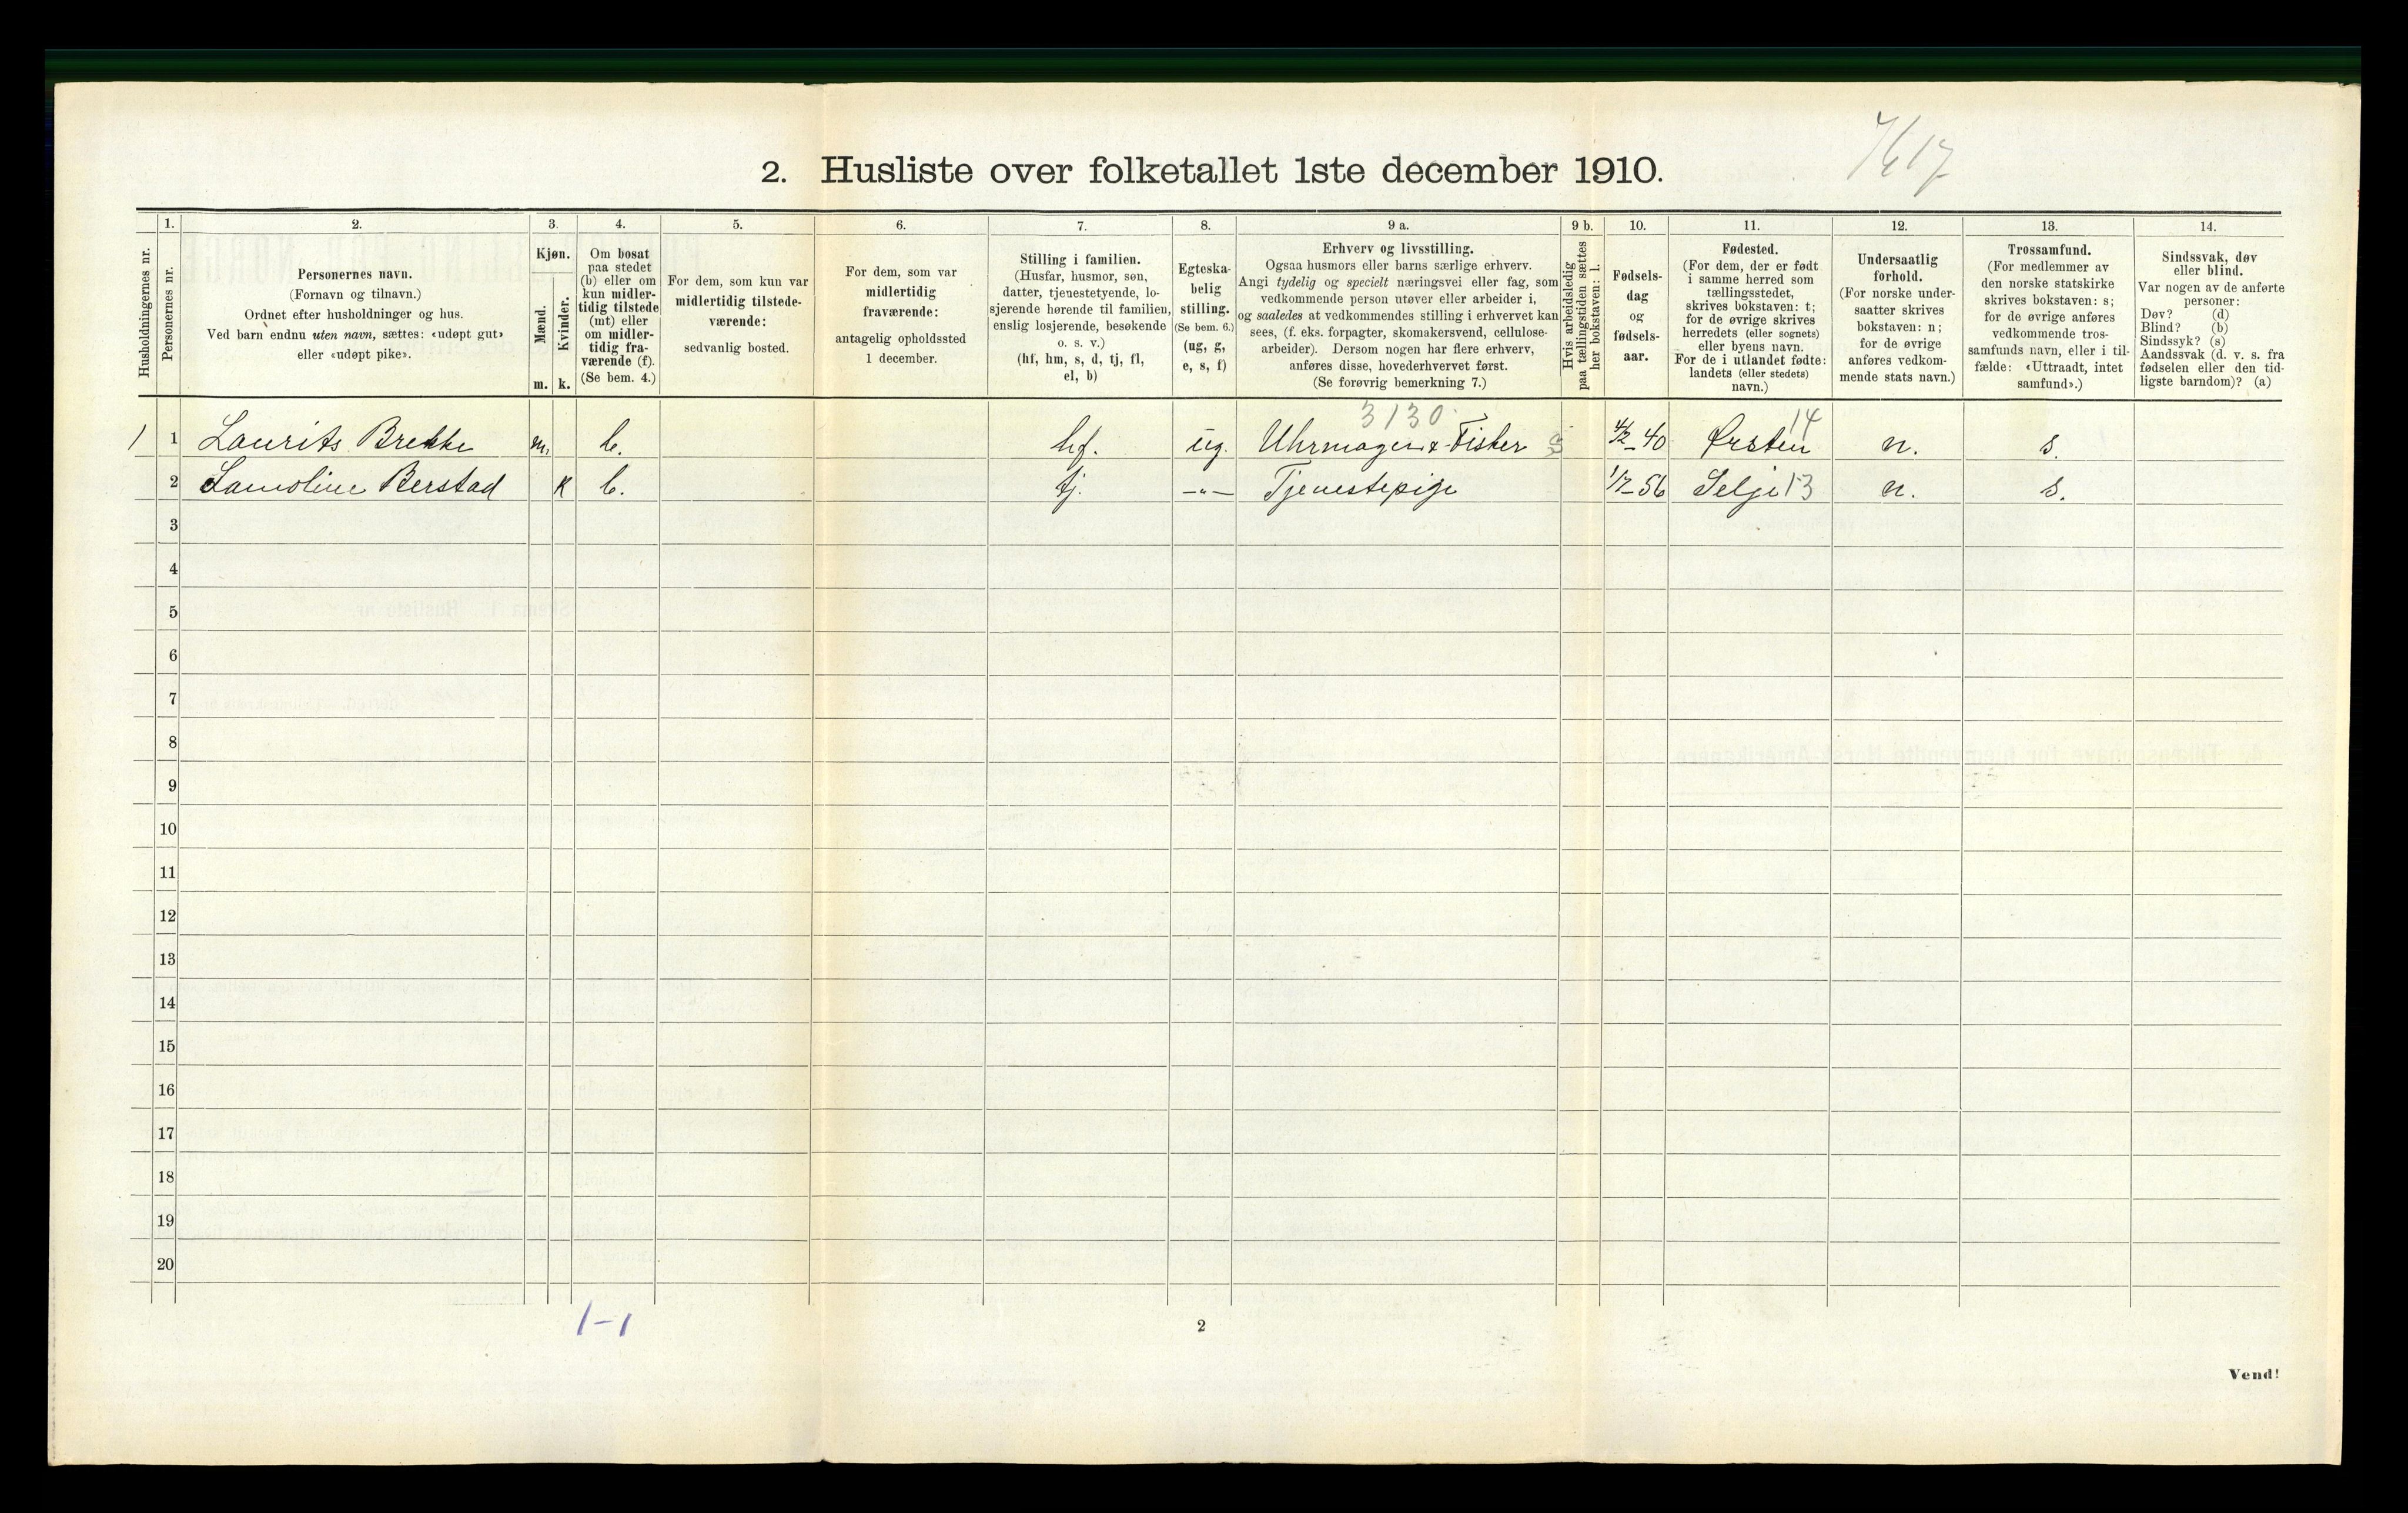 2. Husliste over folketallet 1ste december 1910.
Husholdningernes nr.
1.
Personernes nr.
2.
Personernes navn.
(Fornavn og tilnavn.)
Ordnet efter husholdninger og hus.
Ved barn endnu uten navn, sættes: «udøpt gut»
eller «udøpt pike».
3.
Kjøn.
Mænd.
Kvinder.
m. k.
4.
Om bosat
paa stedet
(b) eller om
kun midler-
tidig tilstede
(mt) eller
om midler-
tidig fra-
værende (f).
(Se bem. 4.)
5.
For dem, som kun var
midlertidig tilstede-
værende:
sedvanlig bosted.
6.
For dem, som var
midlertidig
fraværende:
antagelig opholdssted
1 december.
7.
Stilling i familien.
(Husfar, husmor, søn,
datter, tjenestetyende, lo-
sjerende hørende til familien,
enslig losjerende, besøkende
o. s. v.)
(hf, hm, s, d, tj, fl,
el, b)
8.
Egteska-
belig
stilling.
(Se bem. 6.)
(ug, g,
e, s, f)
9 a.
Erhverv og livsstilling.
Ogsaa husmors eller barns særlige erhverv.
Angi tydelig og specielt næringsvei eller fag, som
vedkommende person utøver eller arbeider i,
og saaledes at vedkommendes stilling i erhvervet kan
sees, (f. eks. forpagter, skomakersvend, cellulose-
arbeider). Dersom nogen har flere erhverv,
anføres disse, hovederhvervet først.
(Se forøvrig bemerkning 7.)
9 b.
Hvis arbeidsledig
paa tællingstiden sættes
her bokstaven: l.
10.
Fødsels-
dag
og
fødsels-
aar.
11.
Fødested.
(For dem, der er født
i samme herred som
tællingsstedet,
skrives bokstaven: t;
for de øvrige skrives
herredets (eller sognets)
eller byens navn.
For de i utlandet fødte:
landets (eller stedets)
navn.)
12.
Undersaatlig
forhold.
(For norske under-
saatter skrives
bokstaven: n;
for de øvrige
anføres vedkom-
mende stats navn.)
13.
Trossamfund.
(For medlemmer av
den norske statskirke
skrives bokstaven: s;
for de øvrige anføres
vedkommende tros-
samfunds navn, eller i til-
fælde: «Uttraadt, intet
samfund».)
14.
Sindssvak, døv
eller blind.
Var nogen av de anførte
personer:
Døv? (d)
Blind? (b)
Sindssyk? (s)
Aandssvak (d. v. s. fra
fødselen eller den tid-
ligste barndom)? (a)
3130 14
1 1 Laurits Brekke m. b. hf. ug. Uhrmager & Fisker 4/2-40 Ørsten n. s.
2 Samoline Berstad k b. tj. -"- Tjenestepige 1/7-56 Selje 13 n. s.
3
4
5
6
7
8
9
10
11
12
13
14
15
16
17
18
19
20
1-1
2
Vend!